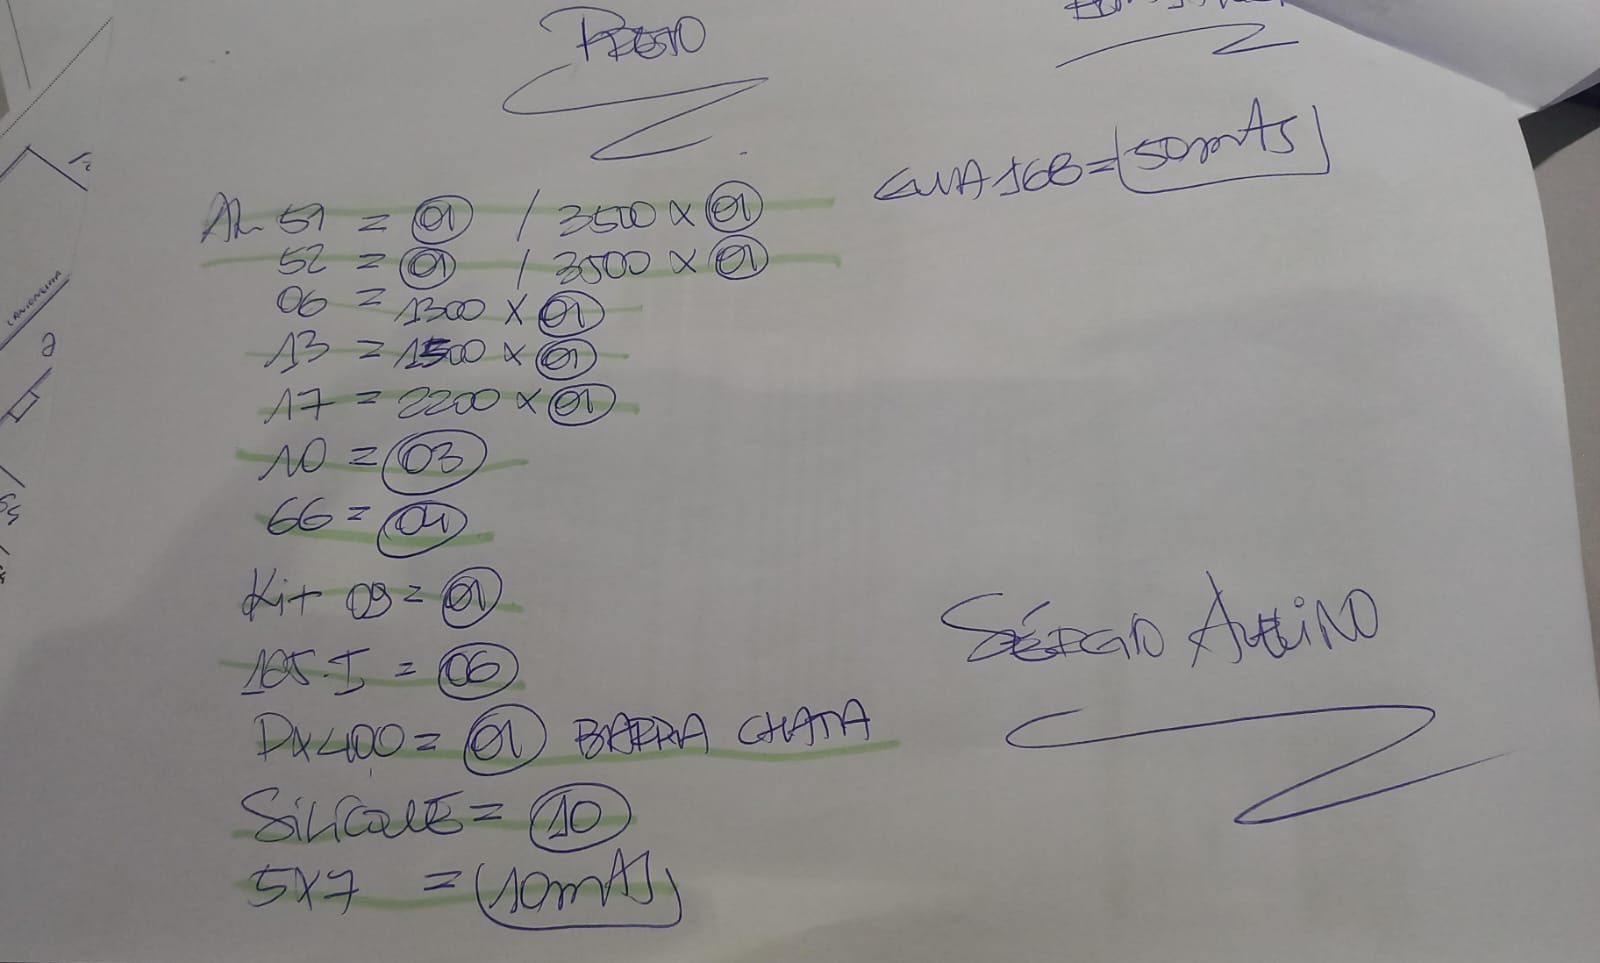 PRETO
AL 51 = 01 / 3500 X 01
52 = 01 / 3500 X 01
06 = 1300 X 01
13 = 1500 X 01
17 = 2200 X 01
10 = 03
66 = 04
Kit 09 = 01
185-I = 06
PX400 = 01 BARRA CHATA
SiLiCONE = 10
5X7 = 10mts
GUIA 168 = 50mts
SÉRGIO AVELiNO